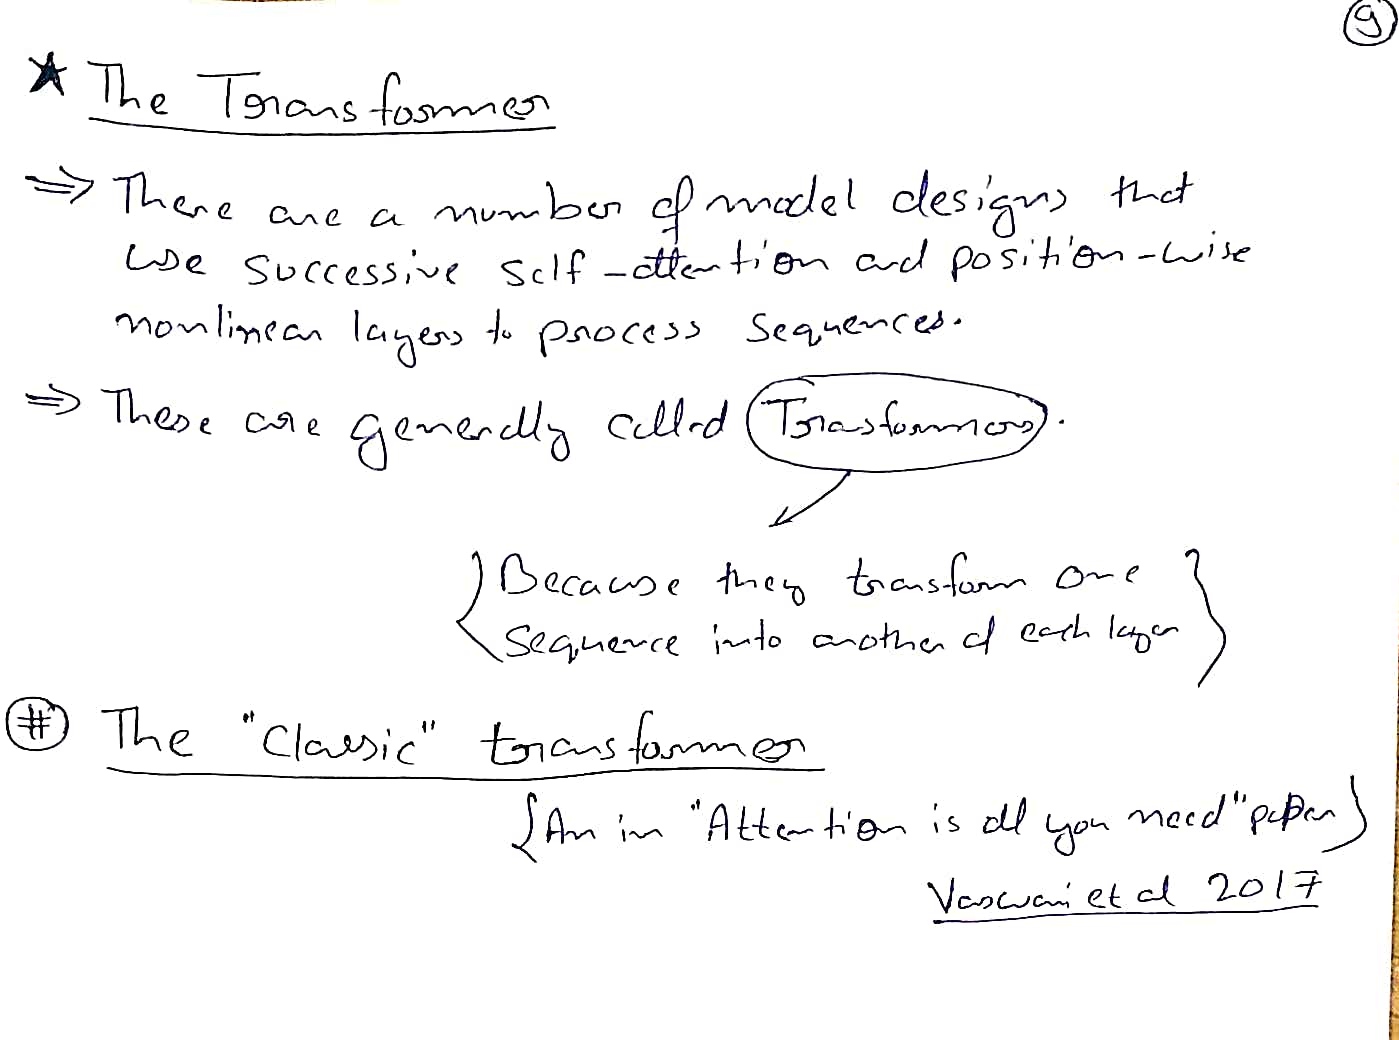 9
The Transformer
⇒ There are a number of model designs that
use successive self-attention and position-wise
nonlinear layers to process sequences.
⇒ These are generally called Trasformers.
{Because they transform one
sequence into another at each layer}
# The "Classic" transformer
{An in "Attention is all you need" paper}
Vaswani et al 2017